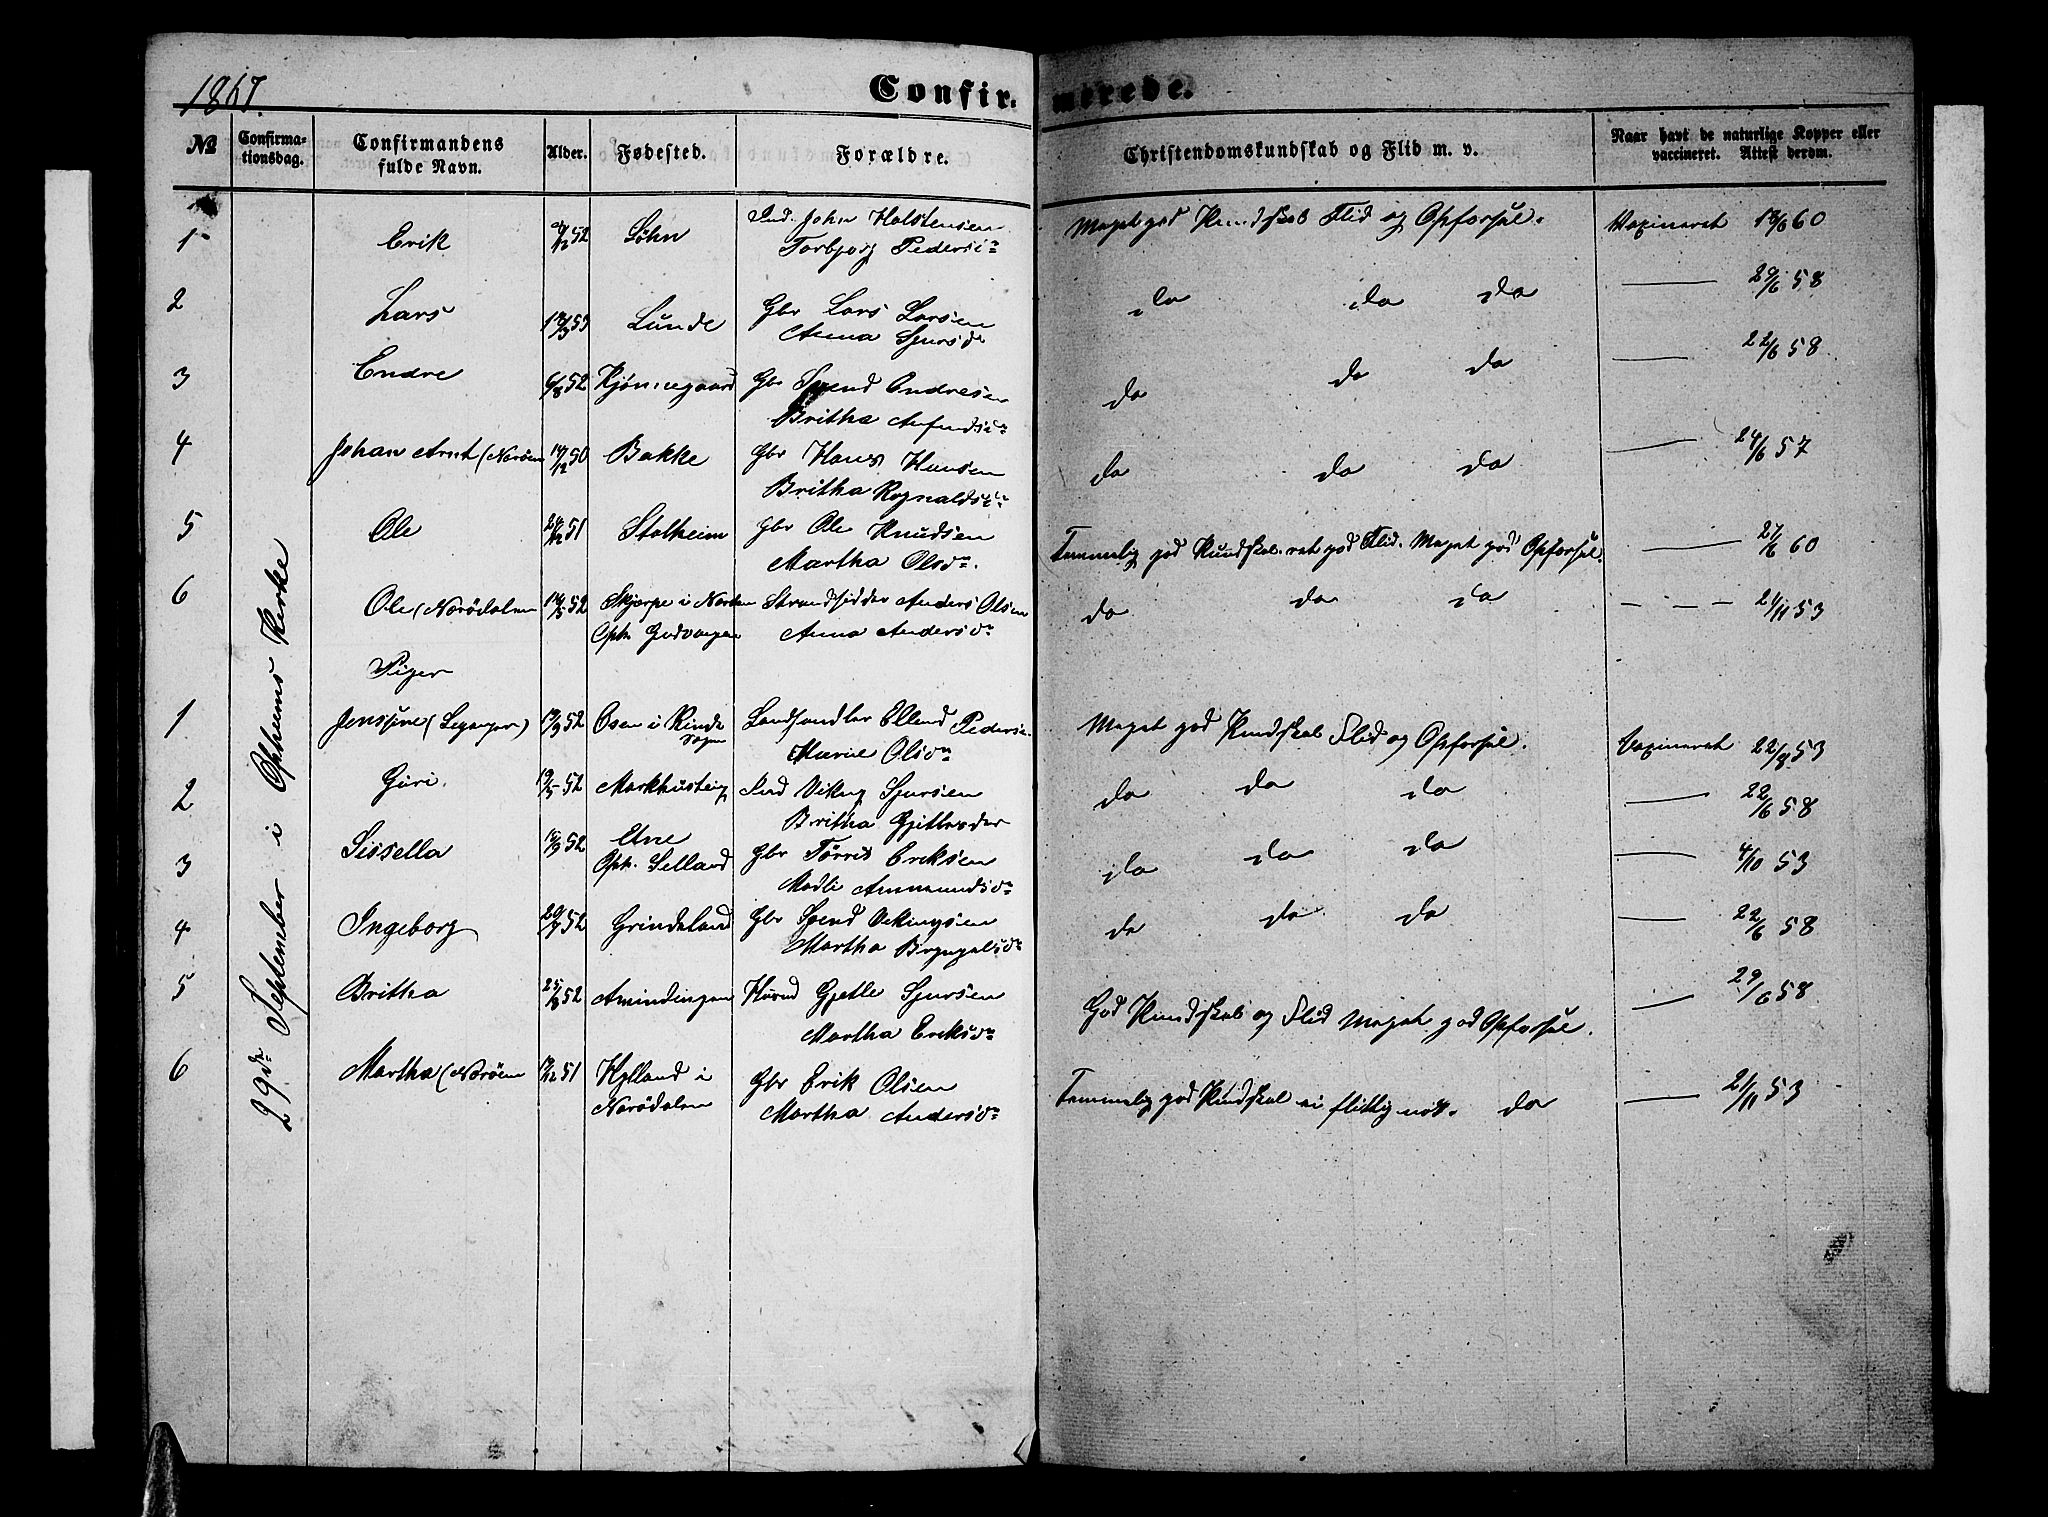 1867.
Confirmerede.
No
Confirmationsdag.
Confirmandens fulde Navn.
Alder.
Fødested.
Forældre.
Christendomskundskab og Flid m. v.
Naar havt de naturlige Kopper eller vaccineret. Attest derom.
29de September i Opheims Kirke
1 Erik 52 Løhn Ind. John Holstensen
Torbjorg Pedersd
Meget god Kundskab Flid og Opførsel. Vaxineret 60
2 Lars 53 Lunde Gbr Lars Larsen
Anna Sjursd
do do do 29/6 58
3 Endre 6/8 52 Kjønnegaard Gbr Svend Endresen
Britha Anfindsd
do do do 22/6 58
4 Johan Arnt (Norøen 14/12 50 Bakke Gbr Hans Hansen
Britha Rognaldsd
do do do 24/6 57
5 Ole 51 Stalheim Gbr Ole Knudsen
Martha Olsdr.
Temmelig god Kundskab. ret god Flid. Meget god Opførsel. 21/6 60
6 Ole (Norödalen 14/5 52 Skjerpe i Strandsidder Anders Olsen
Oph. Gudvangen Anna Andersdr
do do do 21/11 53
Piger
1 Jenssine (Leganger) 19/9 52 Osen i Rinde Sogn Landhandler Ellend Peders
Marie Olsdr
Meget god Kundskab Flid og Opforsel. Vaxineret 22/8 53
2 Guri. 19/5 52 Markhusteig Ind Viking Sjursen
Britha Gjitlesder
do do do 22/6 58
3 Sissella 52 Etne
Oph. Selland Gbr Tørris Eriksen
Madli Ammundsdr
do do do 4/10 53
4 Ingeborg 29/7 52 Grindeland Gbr Svend Vikingsen
Martha Brynjelsdr
do do do 22/6 58
5 Britha 25/8 52 Amindingen Huusd Gjetle Sjursen
Martha Eriksdr
God Kundskab og Flid Meget god Opforsel. 29/6 58
6 Martha (Norøen 51 Hylland i
Norödalen Gbr Erik Olsen
Martha Andersdr
Temmelig god Kundskab ei flittig nok. do 21/11 53